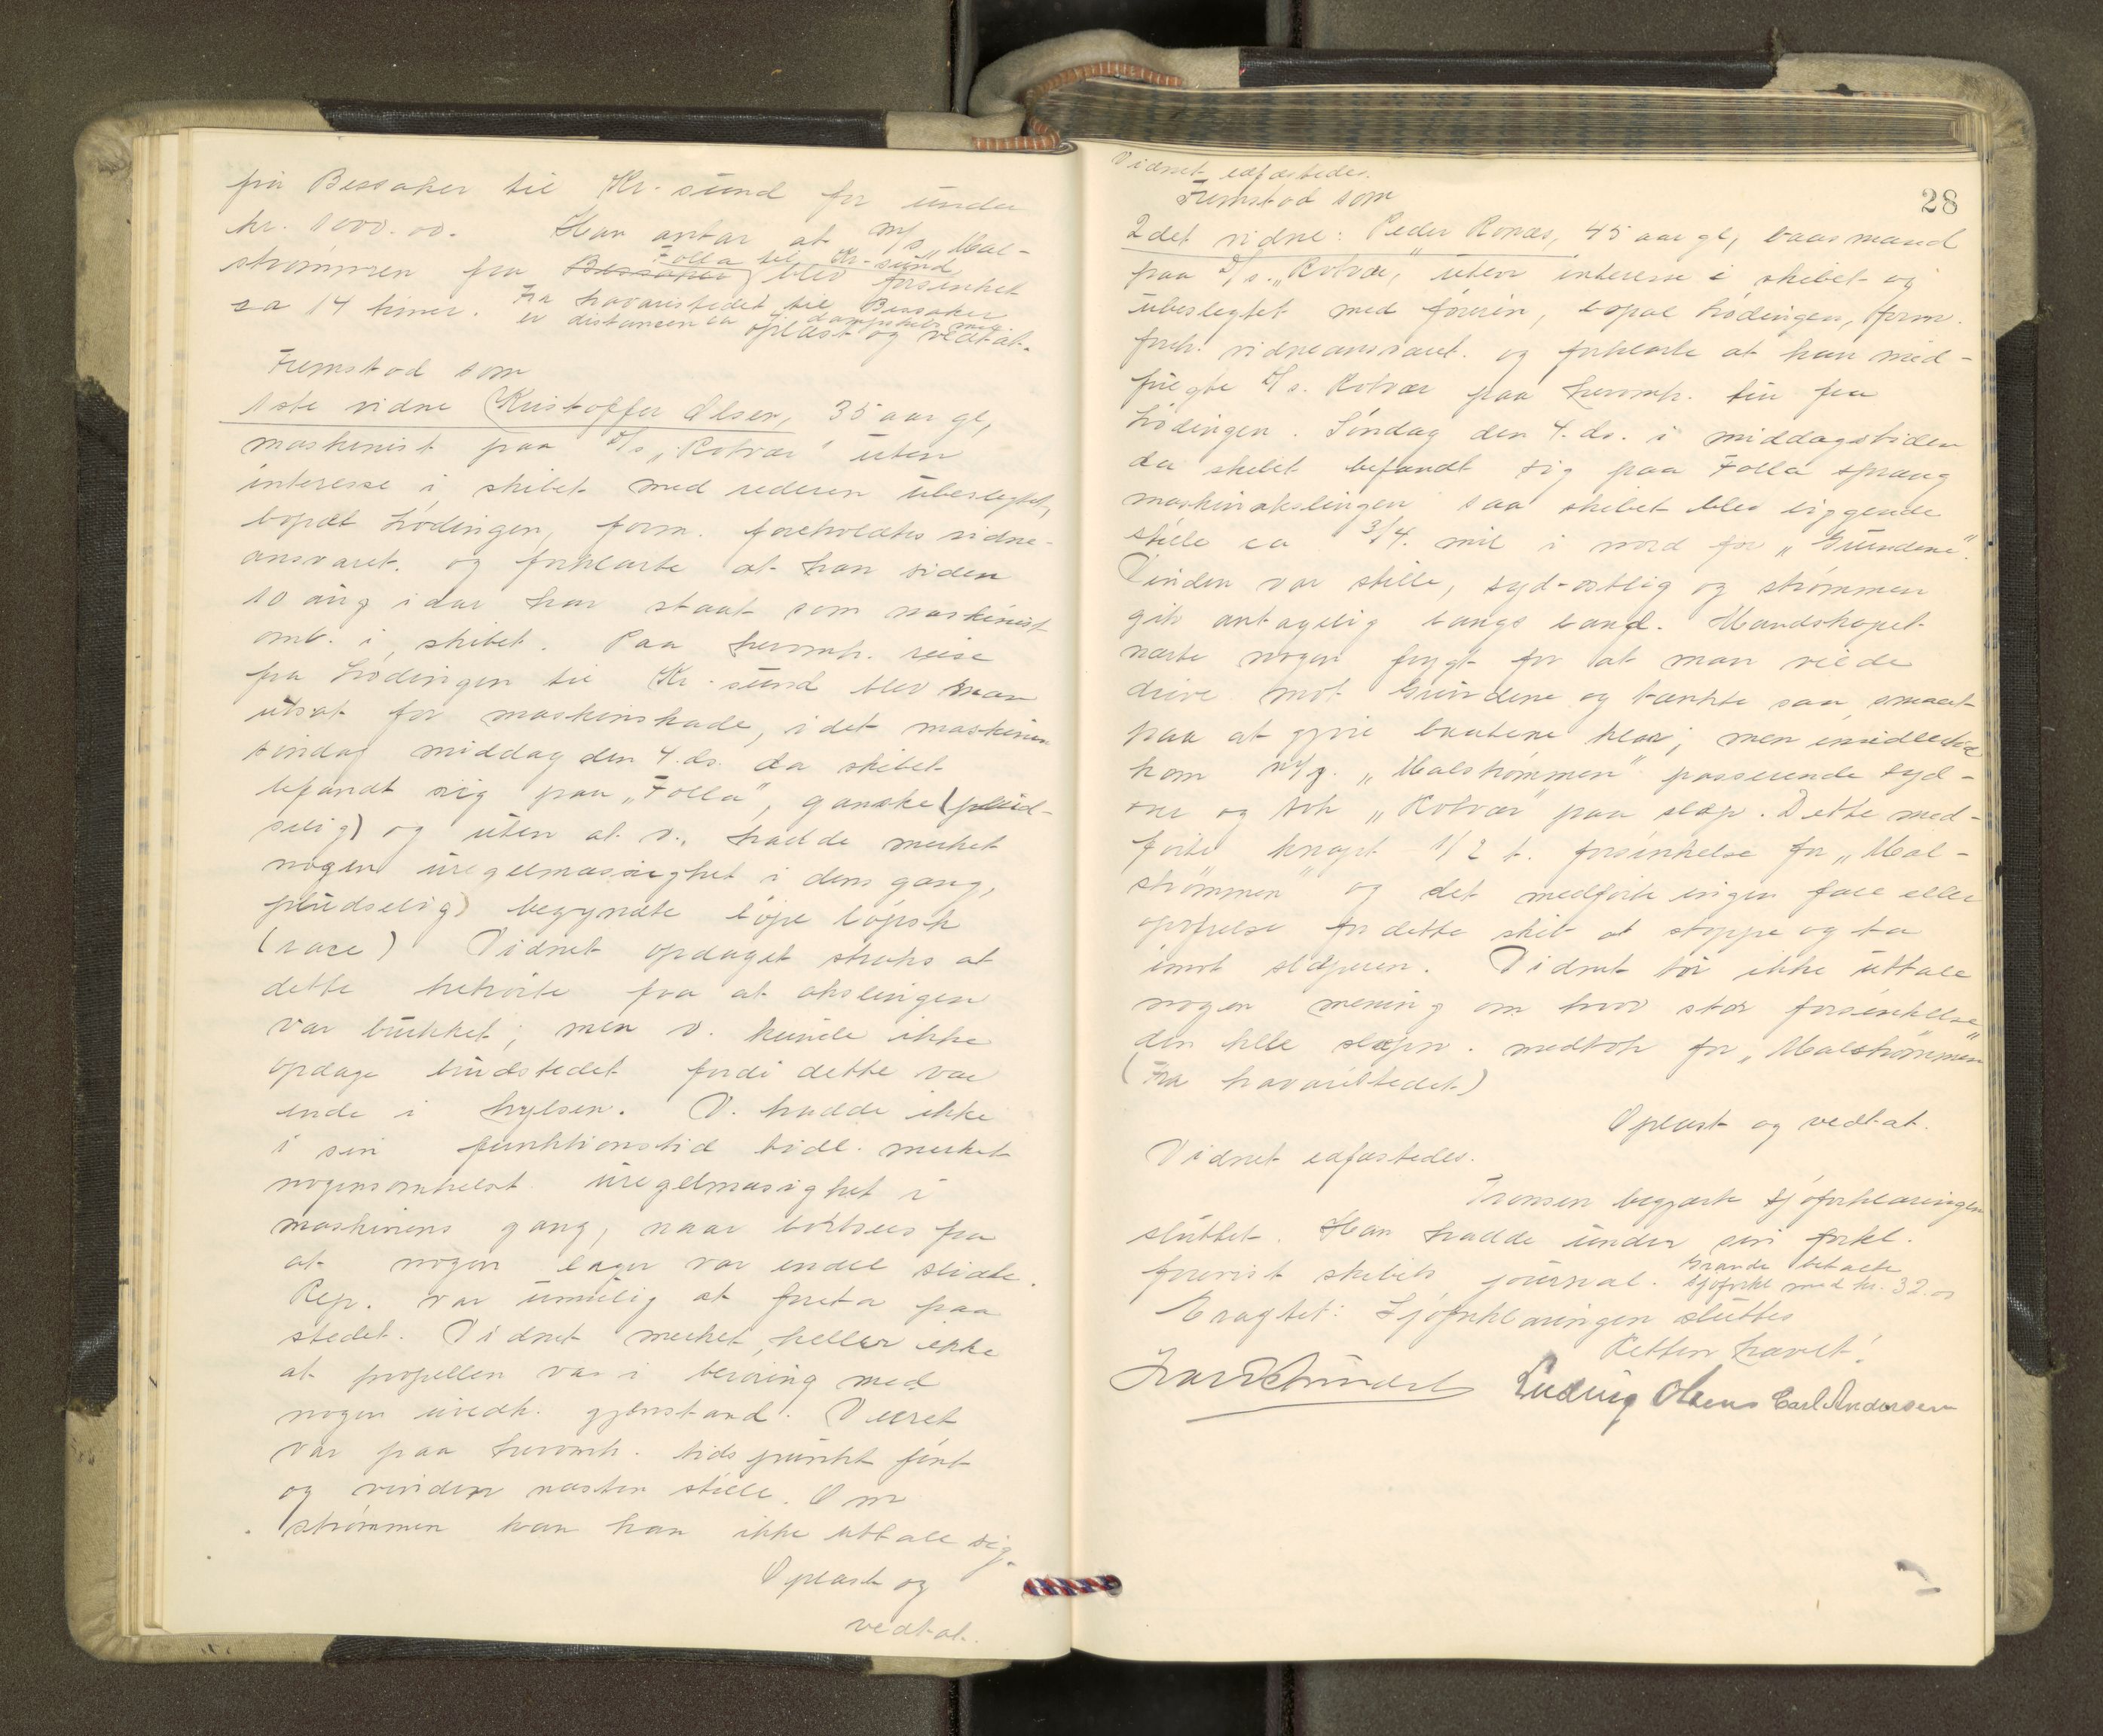 fra Bessaker til Kr.sund for under
kr. 1000.00. Han antar at M/s „Mal-
strømmen fra Bessaker Folla til Kr-sund blev forsinket
ca 14 timer. Fra havaristedet til Bessaker
er distancen ca dampskibs mil.
oplæst og vedtat.
Fremstod som
1ste vidne Kristoffer Olsen, 35 aar gl,
maskinist paa D/s „Rotvær" uten
interesse i skibet med rederen ubeslegtet,
bopæl Lødingen, form. foreholdtes vidne-
ansvaret. og forklarte at han siden
10 aug i aar har staat som maskinist
omb. i skibet. Paa heromh. reise
fra Lødingen til Kr.sund blev man
utsat for maskinskade, idet maskinen
søndag middag den 4. ds. da skibet
befandt sig paa „Folla", ganske (plud-
selig) og uten at v. hadde merket
nogen uregelmæssighet i dens gang,
pludselig) begyndte løpe løpsk
(race) Vidnet opdaget straks at
dette hitrørte fra at akslingen
var brukket; men v. kunde ikke
opdage brudstedet fordi dette var
inde i hylsen. V. hadde ikke
i sin funktionstid tidl. merket
nogensomhelst uregelmæsighet i
maskinens gang, naar bortsees fra
at nogen lager var endel slidte.
Rep. var umulig at foreta paa
stedet. Vidnet merket heller ikke
at propellen var i berøring med
nogen uvedk. gjenstand. Veiret
var paa heromh. tidspunkt fint
og vinden næsten stille. Om
strømmen kan han ikke uttale sig.
Oplæst og
vedtat.
Vidnet edfæstedes.
28
Fremstod som
2det vidne: Peder Ronæs, 45 aar gl, baasmand
paa D/s. „Rotvær," uten interesse i skibet og
ubeslegtet med føreren, bopæl Lødingen, form.
foreh. vidneansvaret. og forklarte at han med-
fulgte D/s. Rotvær paa heromh. tur fra
Lødingen. Søndag den 4. ds. i middagstiden
da skibet befandt sig paa Folla sprang
maskinakslingen saa skibet blev liggende
stille ca 3/4. mil i nord for „Grundene".
Vinden var stille, syd-østlig og strømmen
gik antagelig langs land. Mandskapet
nærte nogen frygt for at man vilde
drive mot Grundene og tænkte saa smaat
paa at gjøre baatene klar; men imidlertid
kom M/s. „Malstrømmen" passerende syd-
over og tok „Rotvær" paa slæp. Dette med-
førte knapt 1/2 t. forsinkelse for „Mal-
strømmen" og det medførte ingen fare eller
opofrelse for dette skib at stoppe og ta
imot slæperen. Vidnet tør ikke uttale
nogen mening om hvor stor forsinkelse
den hele slæpn. medtok for „Malstrømmen"
(Fra havaristedet)
Oplæst og vedtat.
Vidnet edfæstedes.
Tronsen begjærte sjøforklaringen
sluttet. Han hadde under sin forkl.
forevist skibets journal. Grande betalte
sjøforkl med kr. 32.00
Eragtet: Sjøforklaringen sluttes
Retten hævet!
Ludvig Olsens Carl Andersen